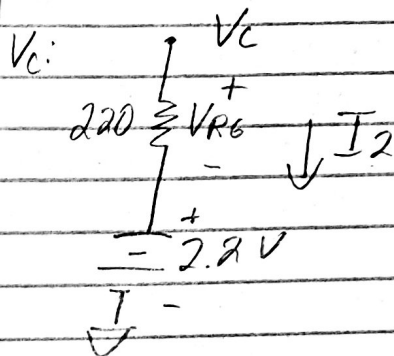 Vc: Vc
+
220 VR6 I2
-
+
2.2 V
-